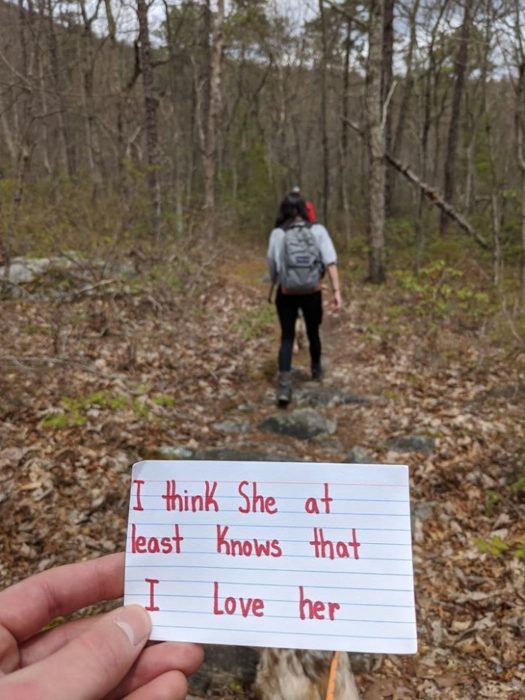 I think She at
least Knows that
I Love her